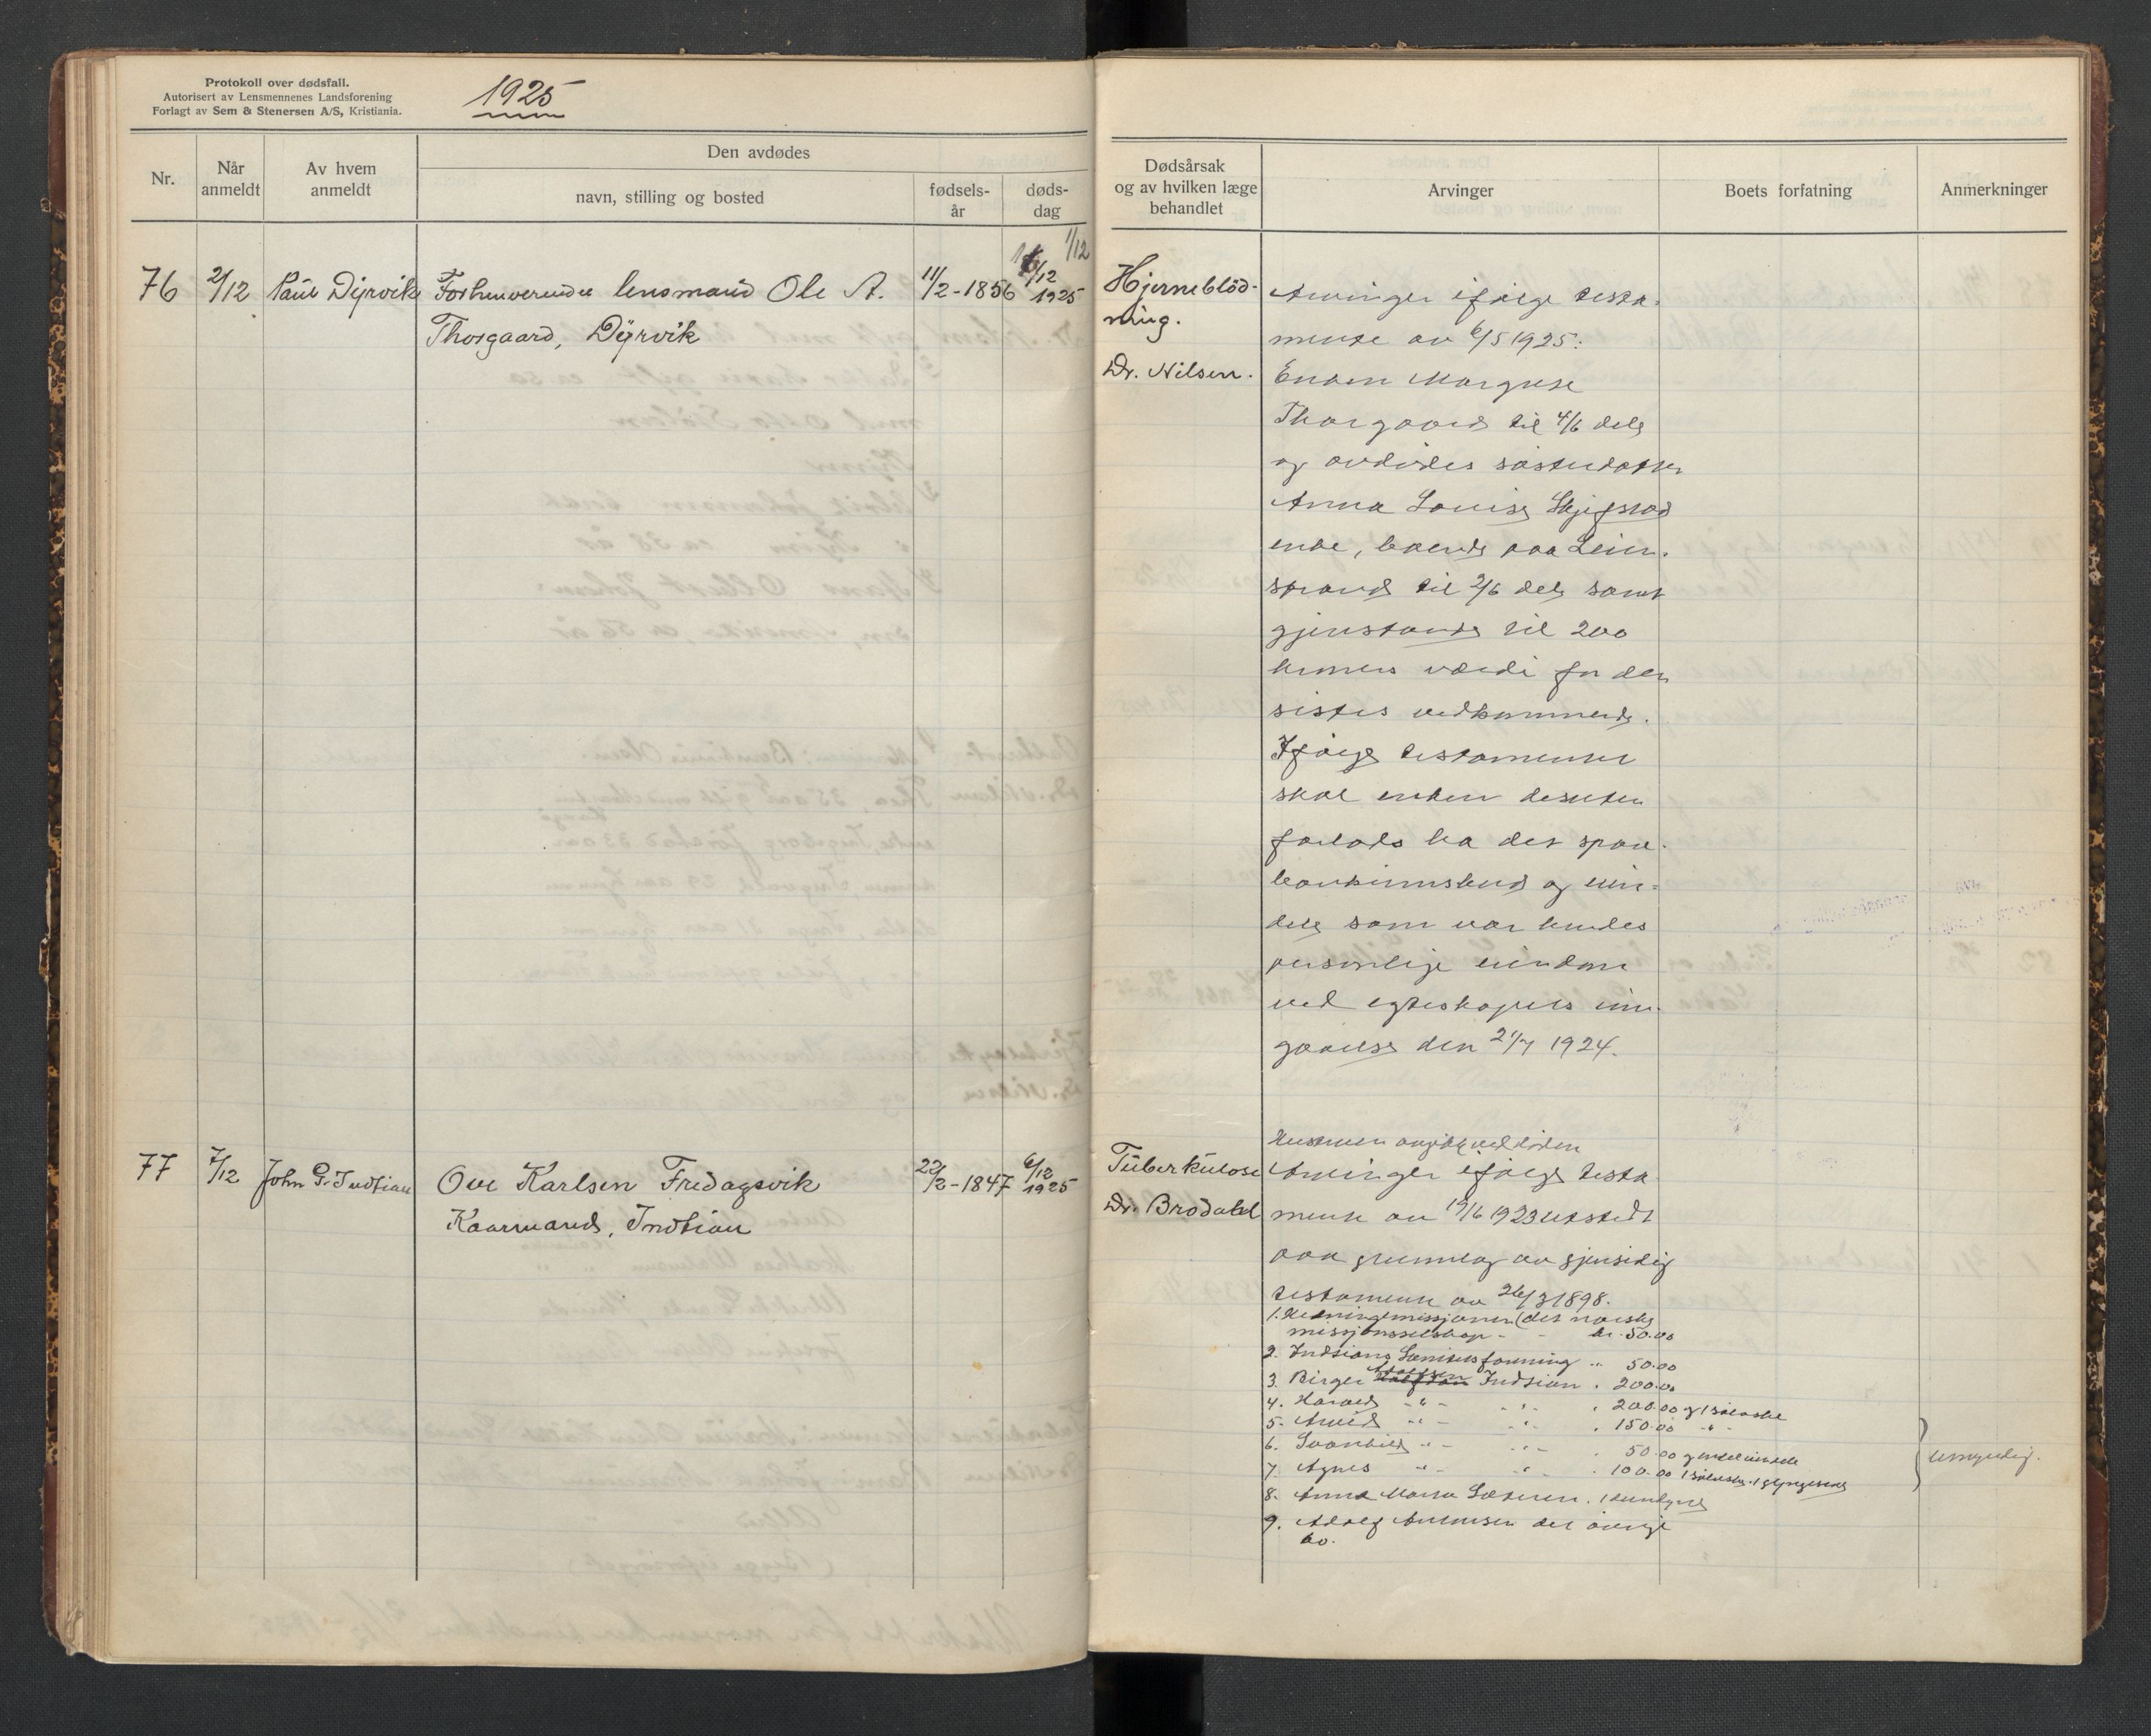 Protokoll over dødsfall.
Autorisert av Lensmennenes Landsforening
Forlagt av Sem & Stenersen A/S, Kristiania.
1925
Nr.
Når anmeldt
Av hvem anmeldt
Den avdødes
navn, stilling og bosted
fødsels-år
døds-dag
Dødsårsak og av hvilken læge behandlet
Arvinger
Boets forfatning
Anmerkninger
1/12
76 2/12 Paul Dyrvik Forhenverende lensmand Ole A. 11/2-1856 /12 1925
Thorgaard, Dyrvik
Hjerneblöd-
ning.
Dr. Nilsen.
Arvinger ifølge testa-
mente av 6/5 1925:
Enken Margrete
Thorgaard til 4/6 dele
og avdødes søsterdatter
Anna Louise Skjefstad
enke, boende paa Lein-
strand til 2/6 dele samt
gjenstande til 200
kroners værdi for den
sistes vedkommende.
Ifølge testamentet
skal enken desuten
forlods ha det spare-
bankinnskud og ein-
dele som var hendes
personlige eiendom
ved egteskapets inn-
gaaelse den 21/7 1924.
77 7/12 John P. Indtian Ove Karlsen Fredagsvik 22/2-1847 6/12 1925
Kaarmand, Indtian
Tuberkulose
Dr. Brödahl
Hustruen avgikk ved döden
Arvinger ifølge testa
mente av 19/6 1923 utstedt
paa grunnlag av gjensidig
testamente av 26/3 1898.
1. Hedningemissjonen (det norske
missjonsselskap - - kr. 50.00
2. Indtians Sanitetsforening " 50.00
3. Birger Adolfsen Indtian . 200.00
4. Harald " - " - . 200.00 og 1
5. Arvid " - " - . 150.00 - " -
6. Svanhild " - " - . 50.00 og
7. Agnes " - " - . 100.00 1
8. Anna Maria Sæteren. 1
9. Adolf Antonsen det øvrige
bo.
umyndig.